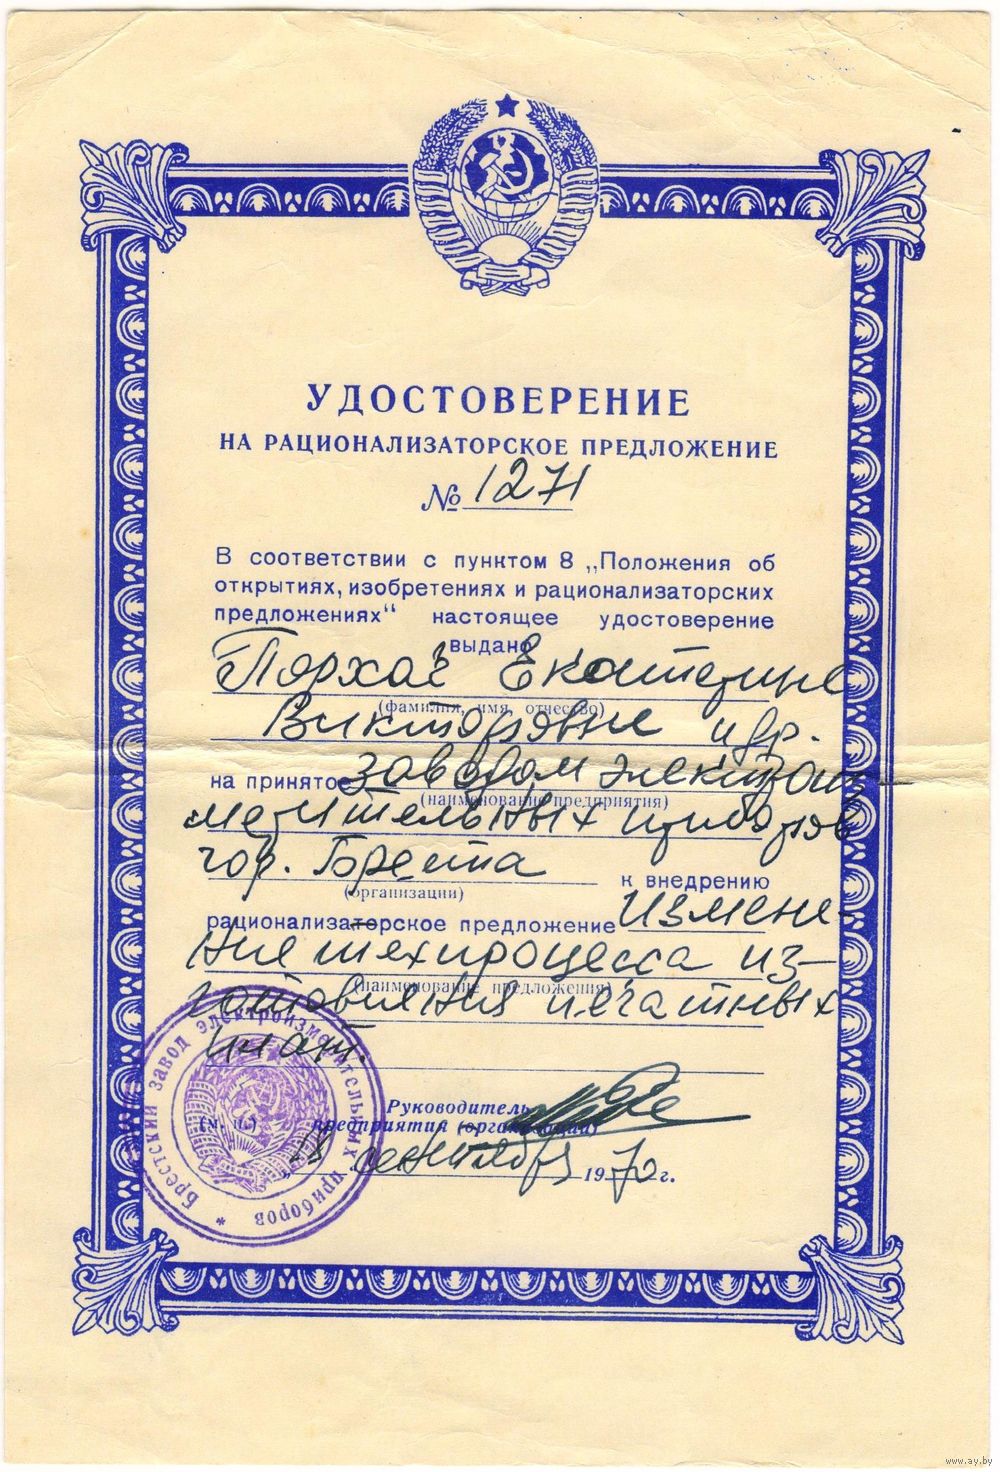 УДОСТОВЕРЕНИЕ
НА РАЦИОНАЛИЗАТОРСКОЕ ПРЕДЛОЖЕНИЕ
№ 1271
В соответствии с пунктом 8 „Положения об
открытиях, изобретениях и рационализаторских
предложениях“ настоящее удостоверение
выдано
Екатерине
(фамилия, имя, отчество)
Викторовне и др.
на принятое заводом электроиз-
(наименование предприятия)
мерительных приборов
гор. Бреста к внедрению
(организации)
рационализаторское предложение Измене-
ние техпроцесса из-
(наименование предложения)
готовления печатных
плат.
Брестский завод электроизмерительных приборов *
(м. п.)
Руководитель
предприятия (организации)
„18 сентября 1970 г.
www.ay.by